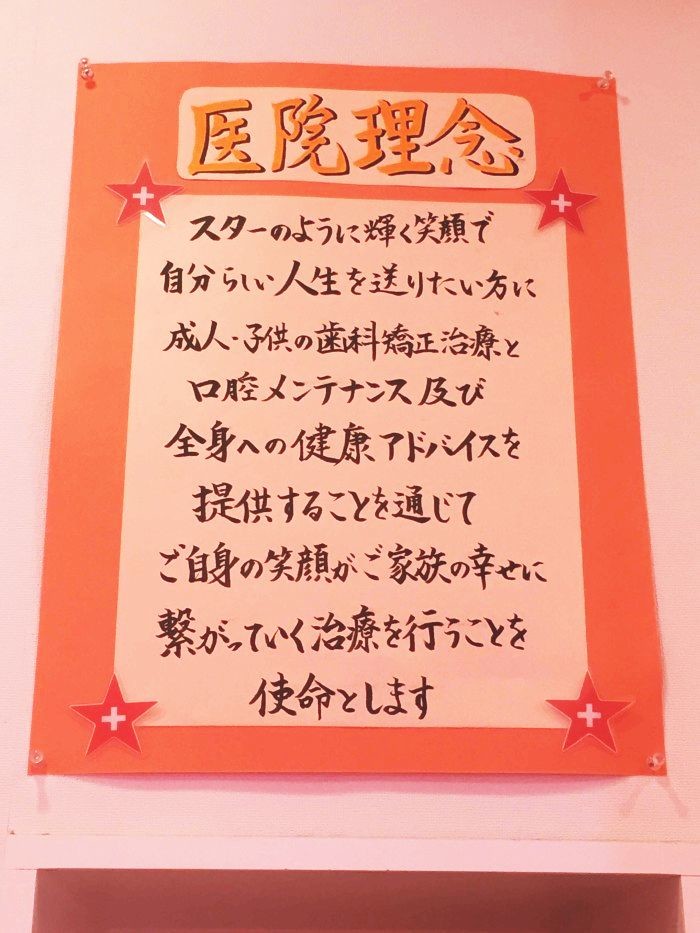 医院理念
スターのように輝く笑顔で
自分らしい人生を送りたい方に
成人・子供の歯科矯正治療と
口腔メンテナンス及び
全身への健康アドバイスを
提供することを通じて
ご自身の笑顔がご家族の幸せに
繋がっていく治療を行うことを
使命とします